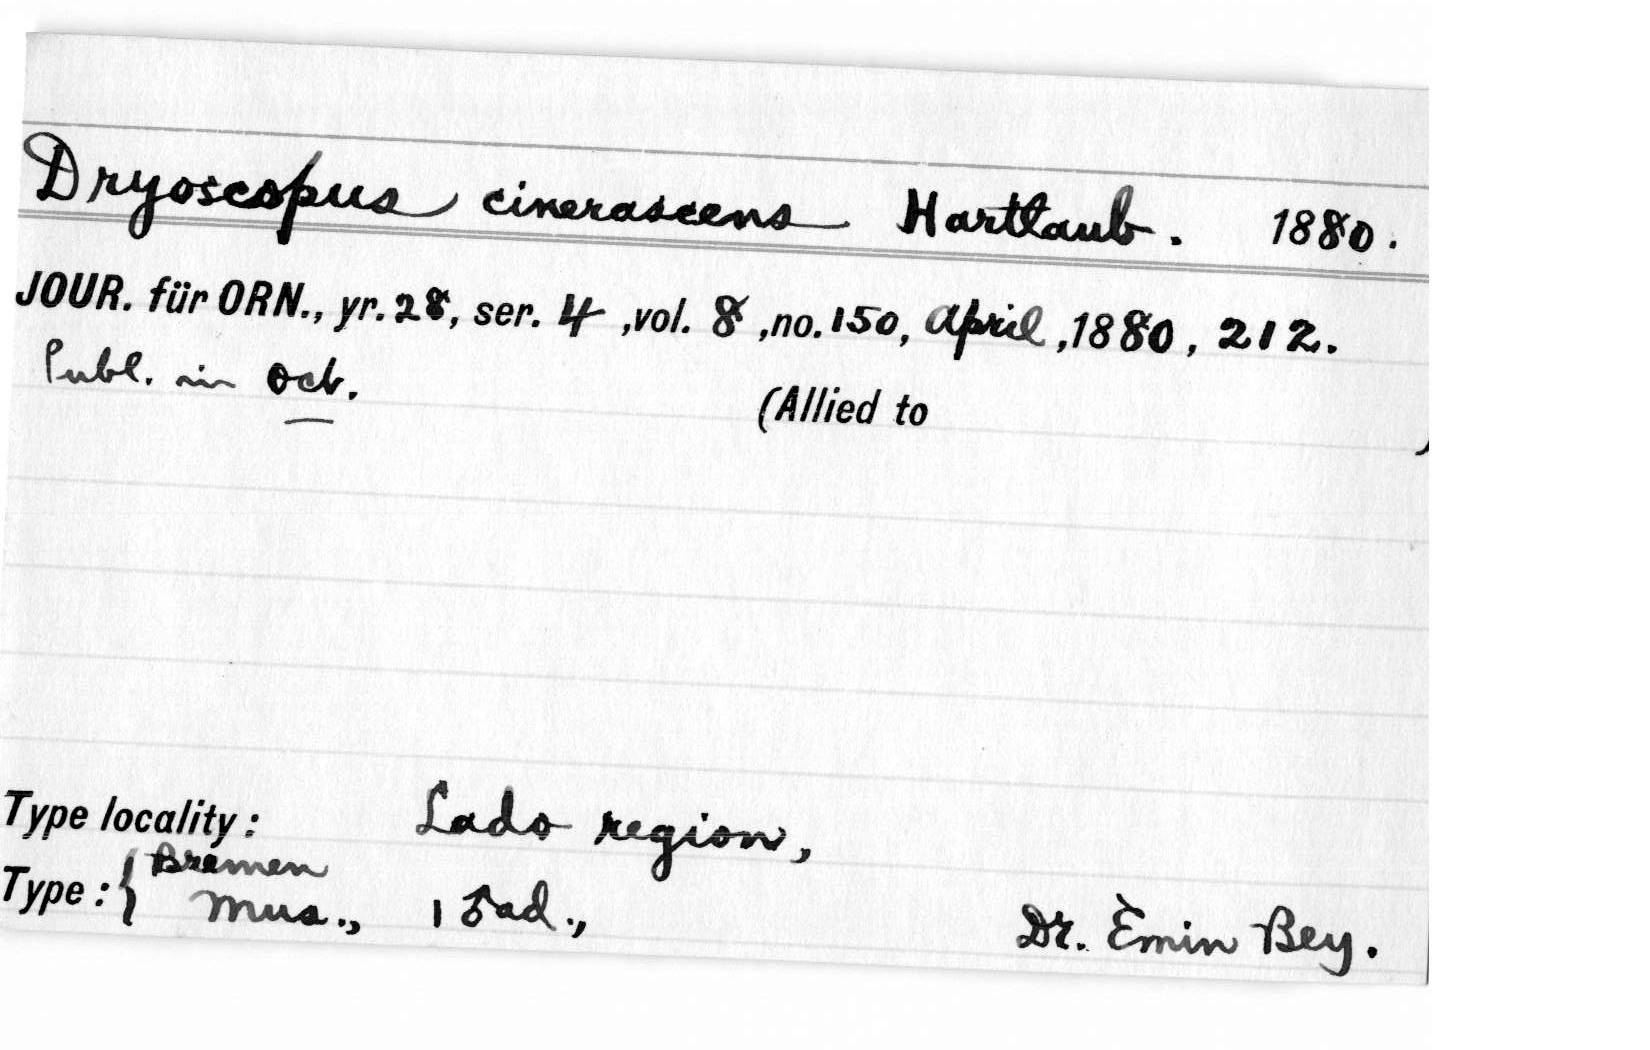 Dryoscopus cinerascens Hartlaub. 1880.
JOUR. für ORN., yr. 28, ser. 4, vol. 8, no. 150, April, 1880, 212.
Publ. in Oct.
(Allied to )
Type locality: Lado region,
Type: { Bremen
Mus., 1 ad., Dr. Èmin Bey.